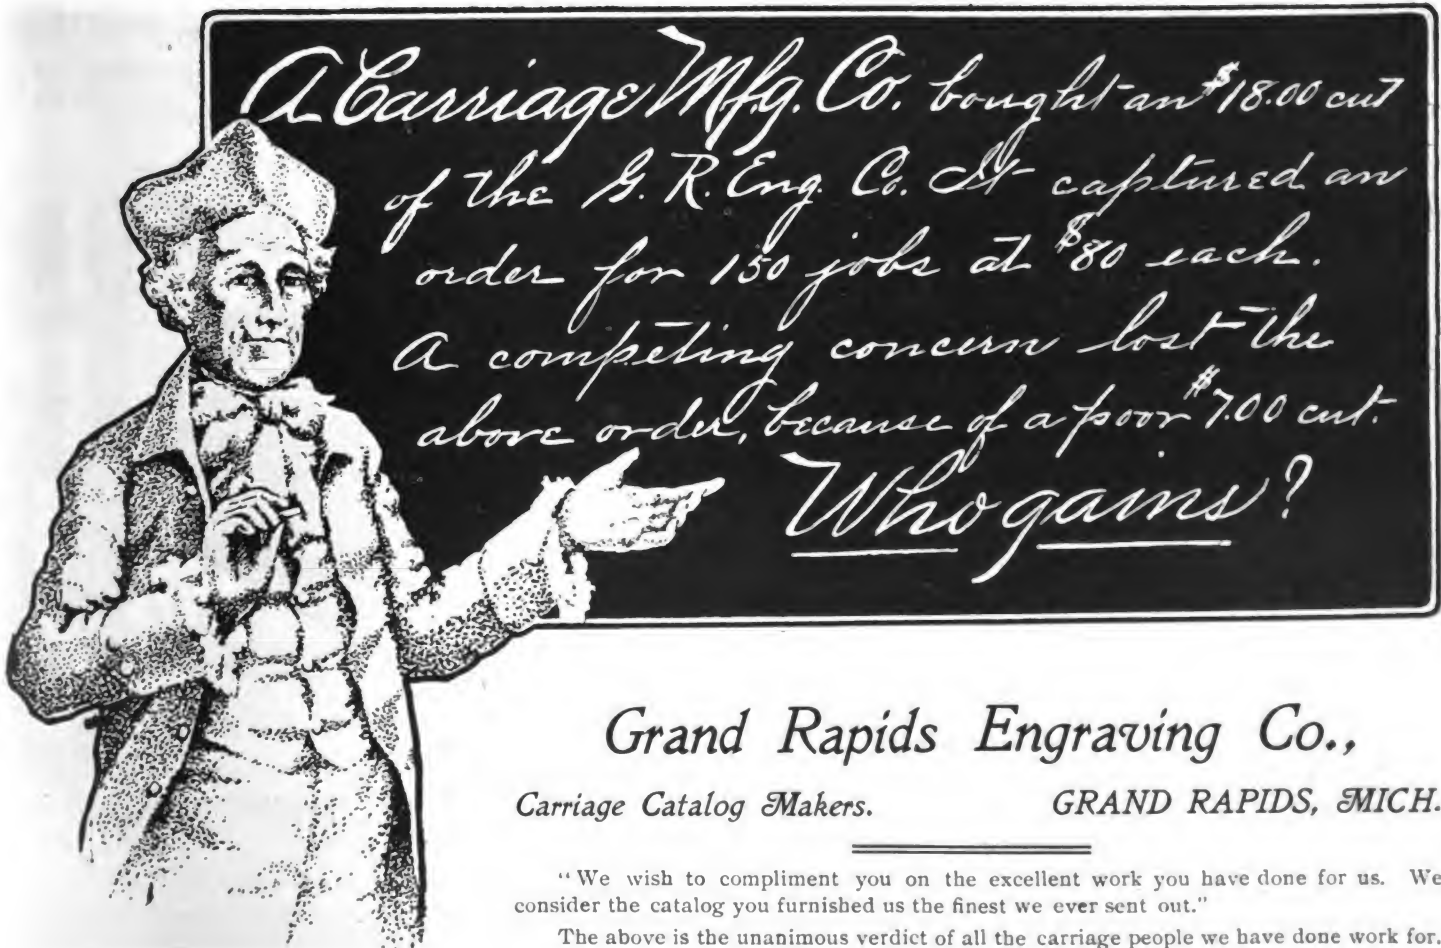 A Carriage Mfg. Co. bought an $18.00 cut
of the G. R. Eng. Co. It captured an
order for 150 jobs at $80 each.
A competing concern lost the
above order, because of a poor $7.00 cut.
Who gains?
Grand Rapids Engraving Co.,
Carriage Catalog Makers. GRAND RAPIDS, MICH.
"We wish to compliment you on the excellent work you have done for us. We
consider the catalog you furnished us the finest we ever sent out."
The above is the unanimous verdict of all the carriage people we have done work for.